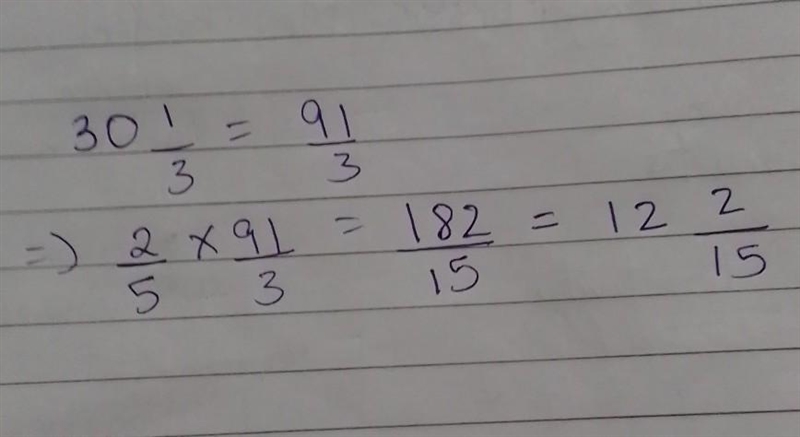 30 1/3 = 91/3
=> 2/5 × 91/3 = 182/15 = 12 2/15